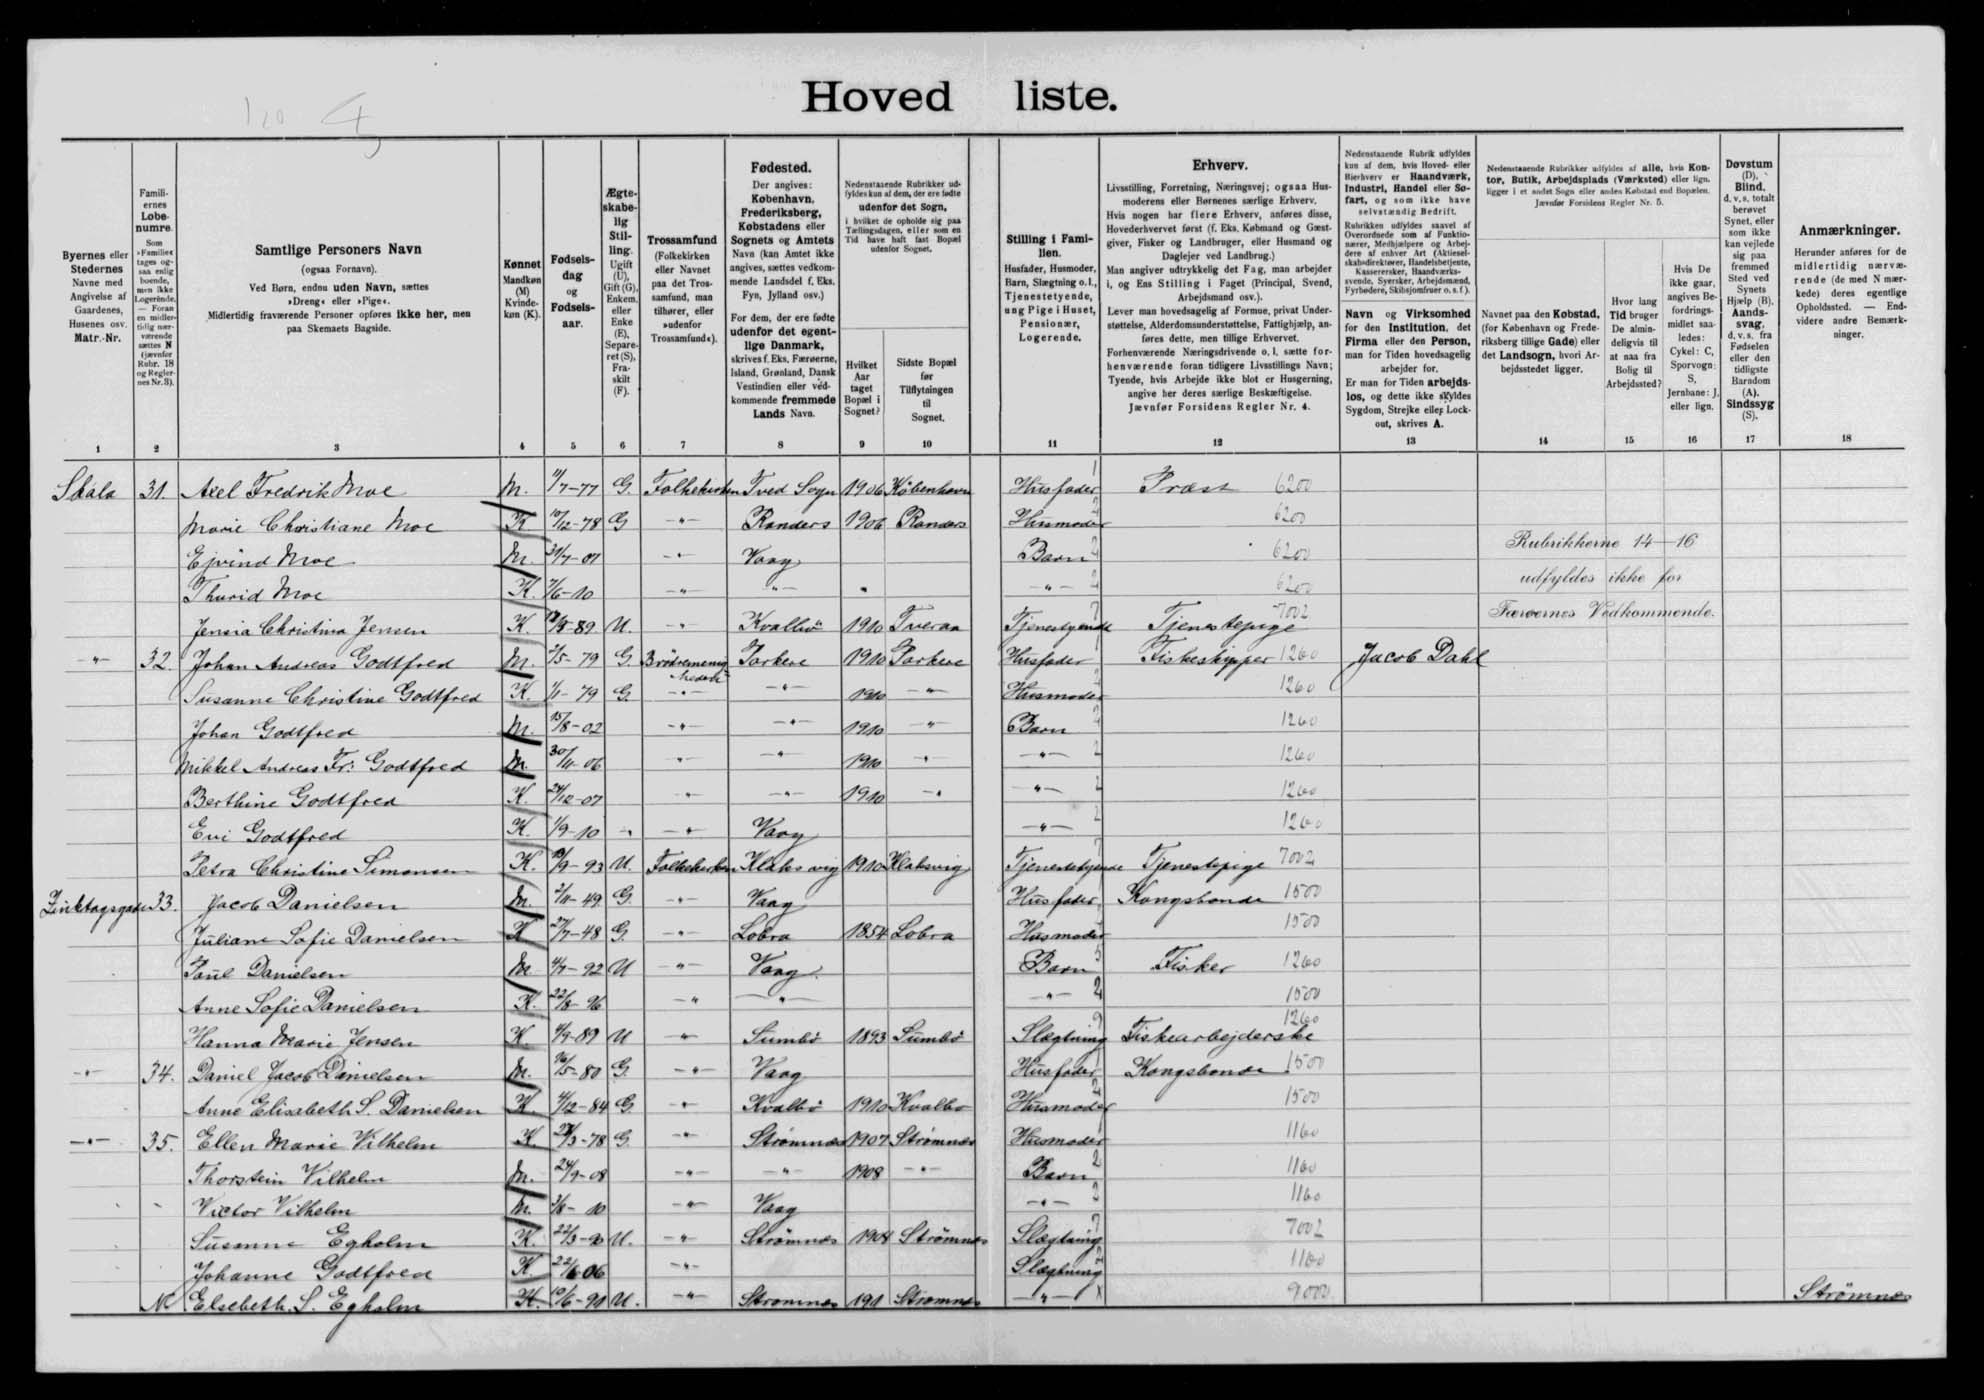 Hoved liste.
Byernes eller Stedernes Navne med Angivelse af Gaardenes, Husenes osv. Matr.-Nr.
Familiernes Løbenumre.
Som »Familie« tages ogsaa enlig boende, men ikke Logerende. — Foran en midlertidig nærværende sættes N (jævnfør Rubr. 18 og Regler­nes Nr. 3).
Samtlige Personers Navn
(ogsaa Fornavn).
Ved Børn, endnu uden Navn, sættes
»Dreng« eller »Pige«.
Midlertidig fraværende Personer opføres ikke her, men
paa Skemaets Bagside.
Kønnet Mandkøn (M) Kvindekøn (K).
Fødselsdag og Fødselsaar.
Ægteskabelig Stilling. Ugift (U), Gift (G), Enkem. eller Enke (E), Separeret (S), Fraskilt (F).
Trossamfund (Folkekirken eller Navnet paa det Trossamfund, man tilhører, eller »udenfor Trossamfund«).
Fødested.
Der angives: København, Frederiksberg, Købstadens eller Sognets og Amtets Navn (kan Amtet ikke angives, sættes vedkommende Landsdel f. Eks. Fyn, Jylland osv.)
For dem, der ere fødte udenfor det egentlige Danmark, skrives f. Eks. Færøerne, Island, Grønland, Dansk Vestindien eller vedkommende fremmede Lands Navn.
Nedenstaaende Rubrikker udfyldes kun af dem, der ere fødte udenfor det Sogn, i hvilket de opholde sig paa Tællingsdagen, eller som en Tid have haft fast Bopæl udenfor Sognet.
Hvilket Aar taget Bopæl i Sognet?
Sidste Bopæl før Tilflytningen til Sognet.
Stilling i Familien.
Husfader, Husmoder, Barn, Slægtning o.l., Tjenestetyende, ung Pige i Huset, Pensionær, Logerende.
Erhverv.
Livsstilling, Forretning, Næringsvej; ogsaa Husmoderens eller Børnenes særlige Erhverv.
Hvis nogen har flere Erhverv, anføres disse, Hovederhvervet først (f. Eks. Købmand og Gæstgiver, Fisker og Landbruger, eller Husmand og Daglejer ved Landbrug.)
Man angiver udtrykkelig det Fag, man arbejder i, og Ens Stilling i Faget (Principal, Svend, Arbejdsmand osv.).
Lever man hovedsagelig af Formue, privat Understøttelse, Alderdomsunderstøttelse, Fattighjælp, anføres dette, men tillige Erhvervet.
Forhenværende Næringsdrivende o. l. sætte forhenværende foran tidligere Livsstillings Navn; Tyende, hvis Arbejde ikke blot er Husgerning, angive her deres særlige Beskæftigelse.
Jævnfør Forsidens Regler Nr. 4.
Nedenstaaende Rubrik udfyldes kun af dem, hvis Hoved- eller Bierhverv er Haandværk, Industri, Handel eller Søfart, og som ikke have selvstændig Bedrift.
Rubrikken udfyldes saavel af Overordnede som af Funktionærer, Medhjælpere og Arbejdere af enhver Art (Aktieselskabsdirektører, Handelsbetjente, Kasserersker, Haandværkssvende, Syersker, Arbejdsmænd, Fyrbødere, Skibsjomfruer o. s. f.).
Navn og Virksomhed for den Institution, det Firma eller den Person, man for Tiden hovedsagelig arbejder for.
Er man for Tiden arbejdsløs, og dette ikke skyldes Sygdom, Strejke eller Lockout, skrives A.
Nedenstaaende Rubrikker udfyldes af alle, hvis Kontor, Butik, Arbejdsplads (Værksted) eller lign. ligger i et andet Sogn eller anden Købstad end Bopælen.
Jævnfør Forsidens Regler Nr. 5.
Navnet paa den Købstad, (for København og Frederiksberg tillige Gade) eller det Landsogn, hvori Arbejdsstedet ligger.
Hvor lang Tid bruger De almindeligvis til at naa fra Bolig til Arbejdssted?
Hvis De ikke gaar, angives Befordringsmidlet saaledes: Cykel: C, Sporvogn: S, Jernbane: J, eller lign.
Døvstum (D), Blind, d. v. s. totalt berøvet Synet, eller som ikke kan vejlede sig paa fremmed Sted ved Synets Hjælp (B). Aandssvag, d. v. s. fra Fødselen eller den tidligste Barndom (A). Sindssyg (S).
Anmærkninger.
Herunder anføres for de midlertidig nærværende (de med N mærkede) deres egentlige Opholdssted. — Endvidere andre Bemærkninger.
1 2 3 4 5 6 7 8 9 10 11 12 13 14 15 16 17 18
Skala 31. Axel Fredrik Moe M. 11/7-77 G. Folkekirken Tved Sogn 1906 København Husfader 1 Præst 6200
Marie Christiane Moe K 10/12-78 G -"- Randers 1906 Randers Husmoder 6200
Ejvind Moe M. 31/7-07 -"- Vaag Barn 2 6200 Rubrikkerne 14-16
Thurid Moe K. 7/6-10 -"- -"- -"- 2 6200 udfyldes ikke for
Jensia Christina Jensen K. -89 U. -"- Kvalbö 1910 Tveraa Tjenestyende 7 Tjenestepige 7002 Færøernes Vedkommende.
-"- 32. Johan Andreas Godtfred M. 2/5-79 G. Brödremenigheden Porkere 1910 Porkere Husfader Fiskeskipper 1260 Jacob Dahl
Susanne Christine Godtfred K. 1/11-79 G. -"- -"- 1910 -"- Husmoder 1260
Johan Godtfred M. 15/8-02 -"- -"- 1910 -"- Barn 2 1260
Mikkel Andreas Fr: Godtfred M. 30/11-06 -"- -"- 1910 -"- -"- 2 1260
Berthine Godtfred K. 24/12-07 -"- -"- 1910 -"- -"- 2 1260
Evi Godtfred K. 1/9-10 -"- -"- Vaag -"- 2 1260
Petra Christine Simonsen K. -93 U. Folkekirken Klaksvig 1910 Klaksvig Tjenestetyende 7 Tjenestepige 7002
33. Jacob Danielsen M. 2/11-49 G. -"- Vaag Husfader Kongsbonde 1500
Juliane Sofie Danielsen K 27/7-48 G. -"- Lobra 1854 Lobra Husmoder 1500
Poul Danielsen M. 4/7-92 U -"- Vaag Barn 5 Fisker 1260
Anne Sofie Danielsen K. 22/8-96 -"- -"- -"- 2 1500
Hanna Marie Jensen K. 9/9-89 U -"- Sumbö 1893 Sumbö Slægtning 9 Fiskearbejderske 1260
-"- 34. Daniel Jacob Danielsen M. 16/5-80 G. -"- Vaag Husfader 1 Kongsbonde 1500
Anne Elisabeth S. Danielsen K. 4/12-84 G. -"- Kvalbö 1910 Kvalbö Husmoder 2 1500
-"- 35. Ellen Marie Vilhelm K. -78 G. -"- Strömnæs 1907 Strömnæs Husmoder 1160
Thorstein Vilhelm M. 24/9-08 -"- -"- 1908 -"- Barn 2 1160
Victor Vilhelm M. 3/8-10 -"- Vaag -"- 2 1160
Susanne Egholm K. 22/3-90 U. -"- Strömnæs 1908 Strömnæs Slægtning 7 7002
Johanne Godtfred K. 22/6 06 -"- Slægtning 2 1160
N Elsebeth S. Egholm K. 10/6-91 U. -"- Strømnæs 191 Strømnæs -"- x 9000 Strømnæs